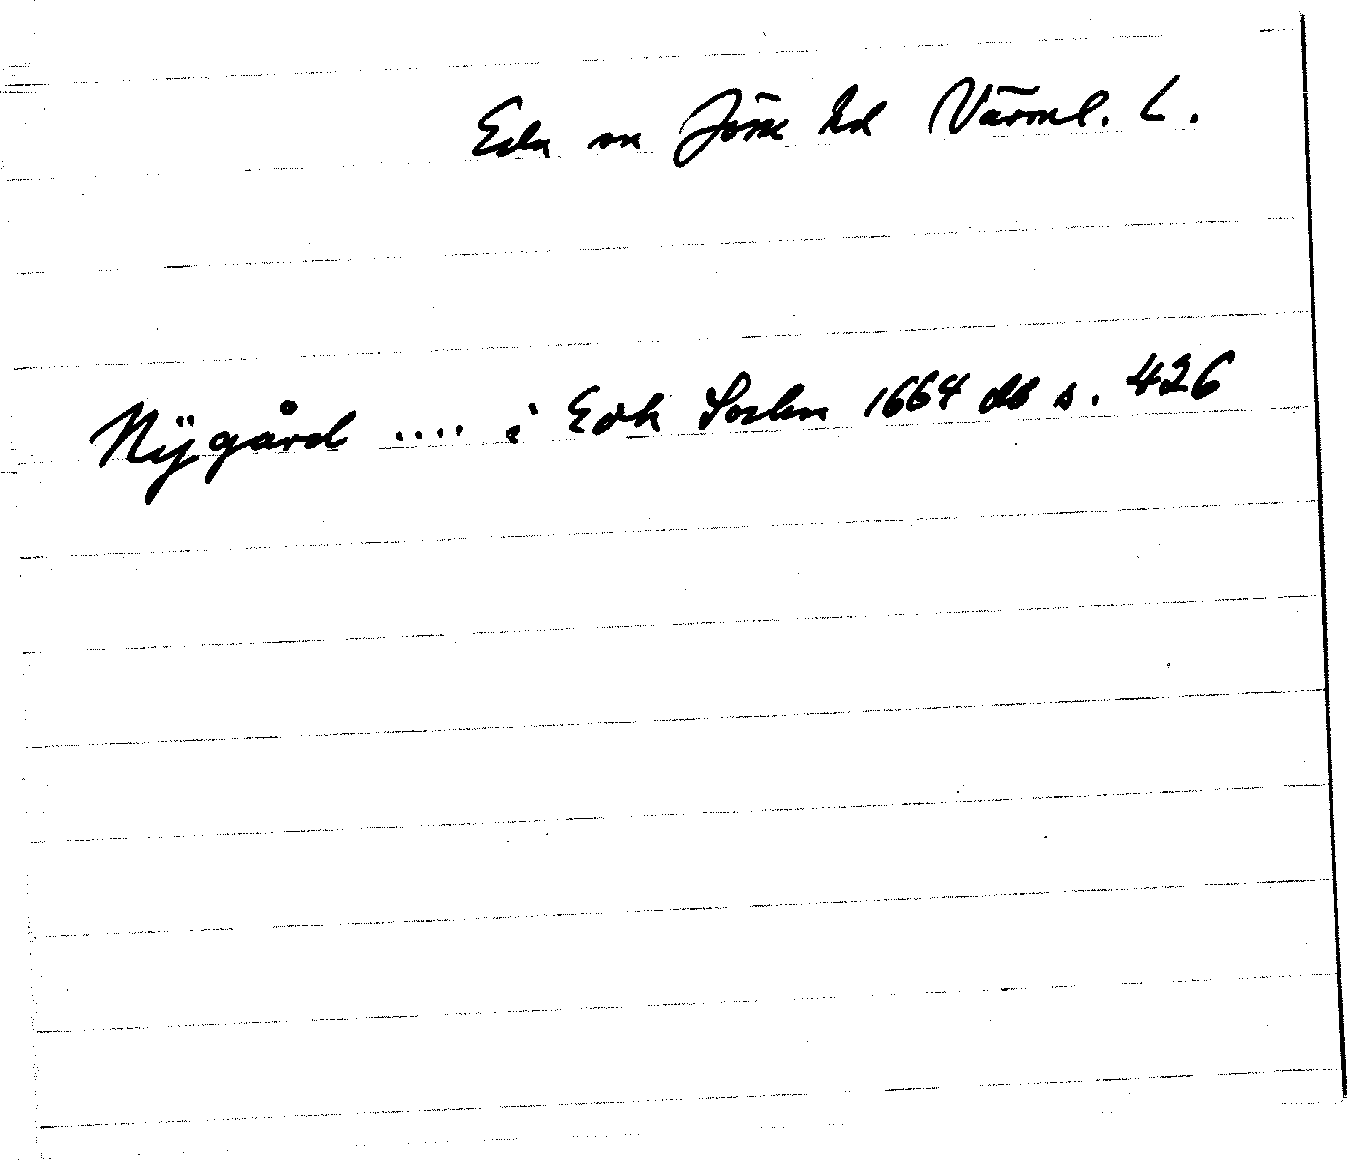 Eda sn Jösse hd Värml. L.
Nÿgård .... i Edh Sochn 1664 db s. 426